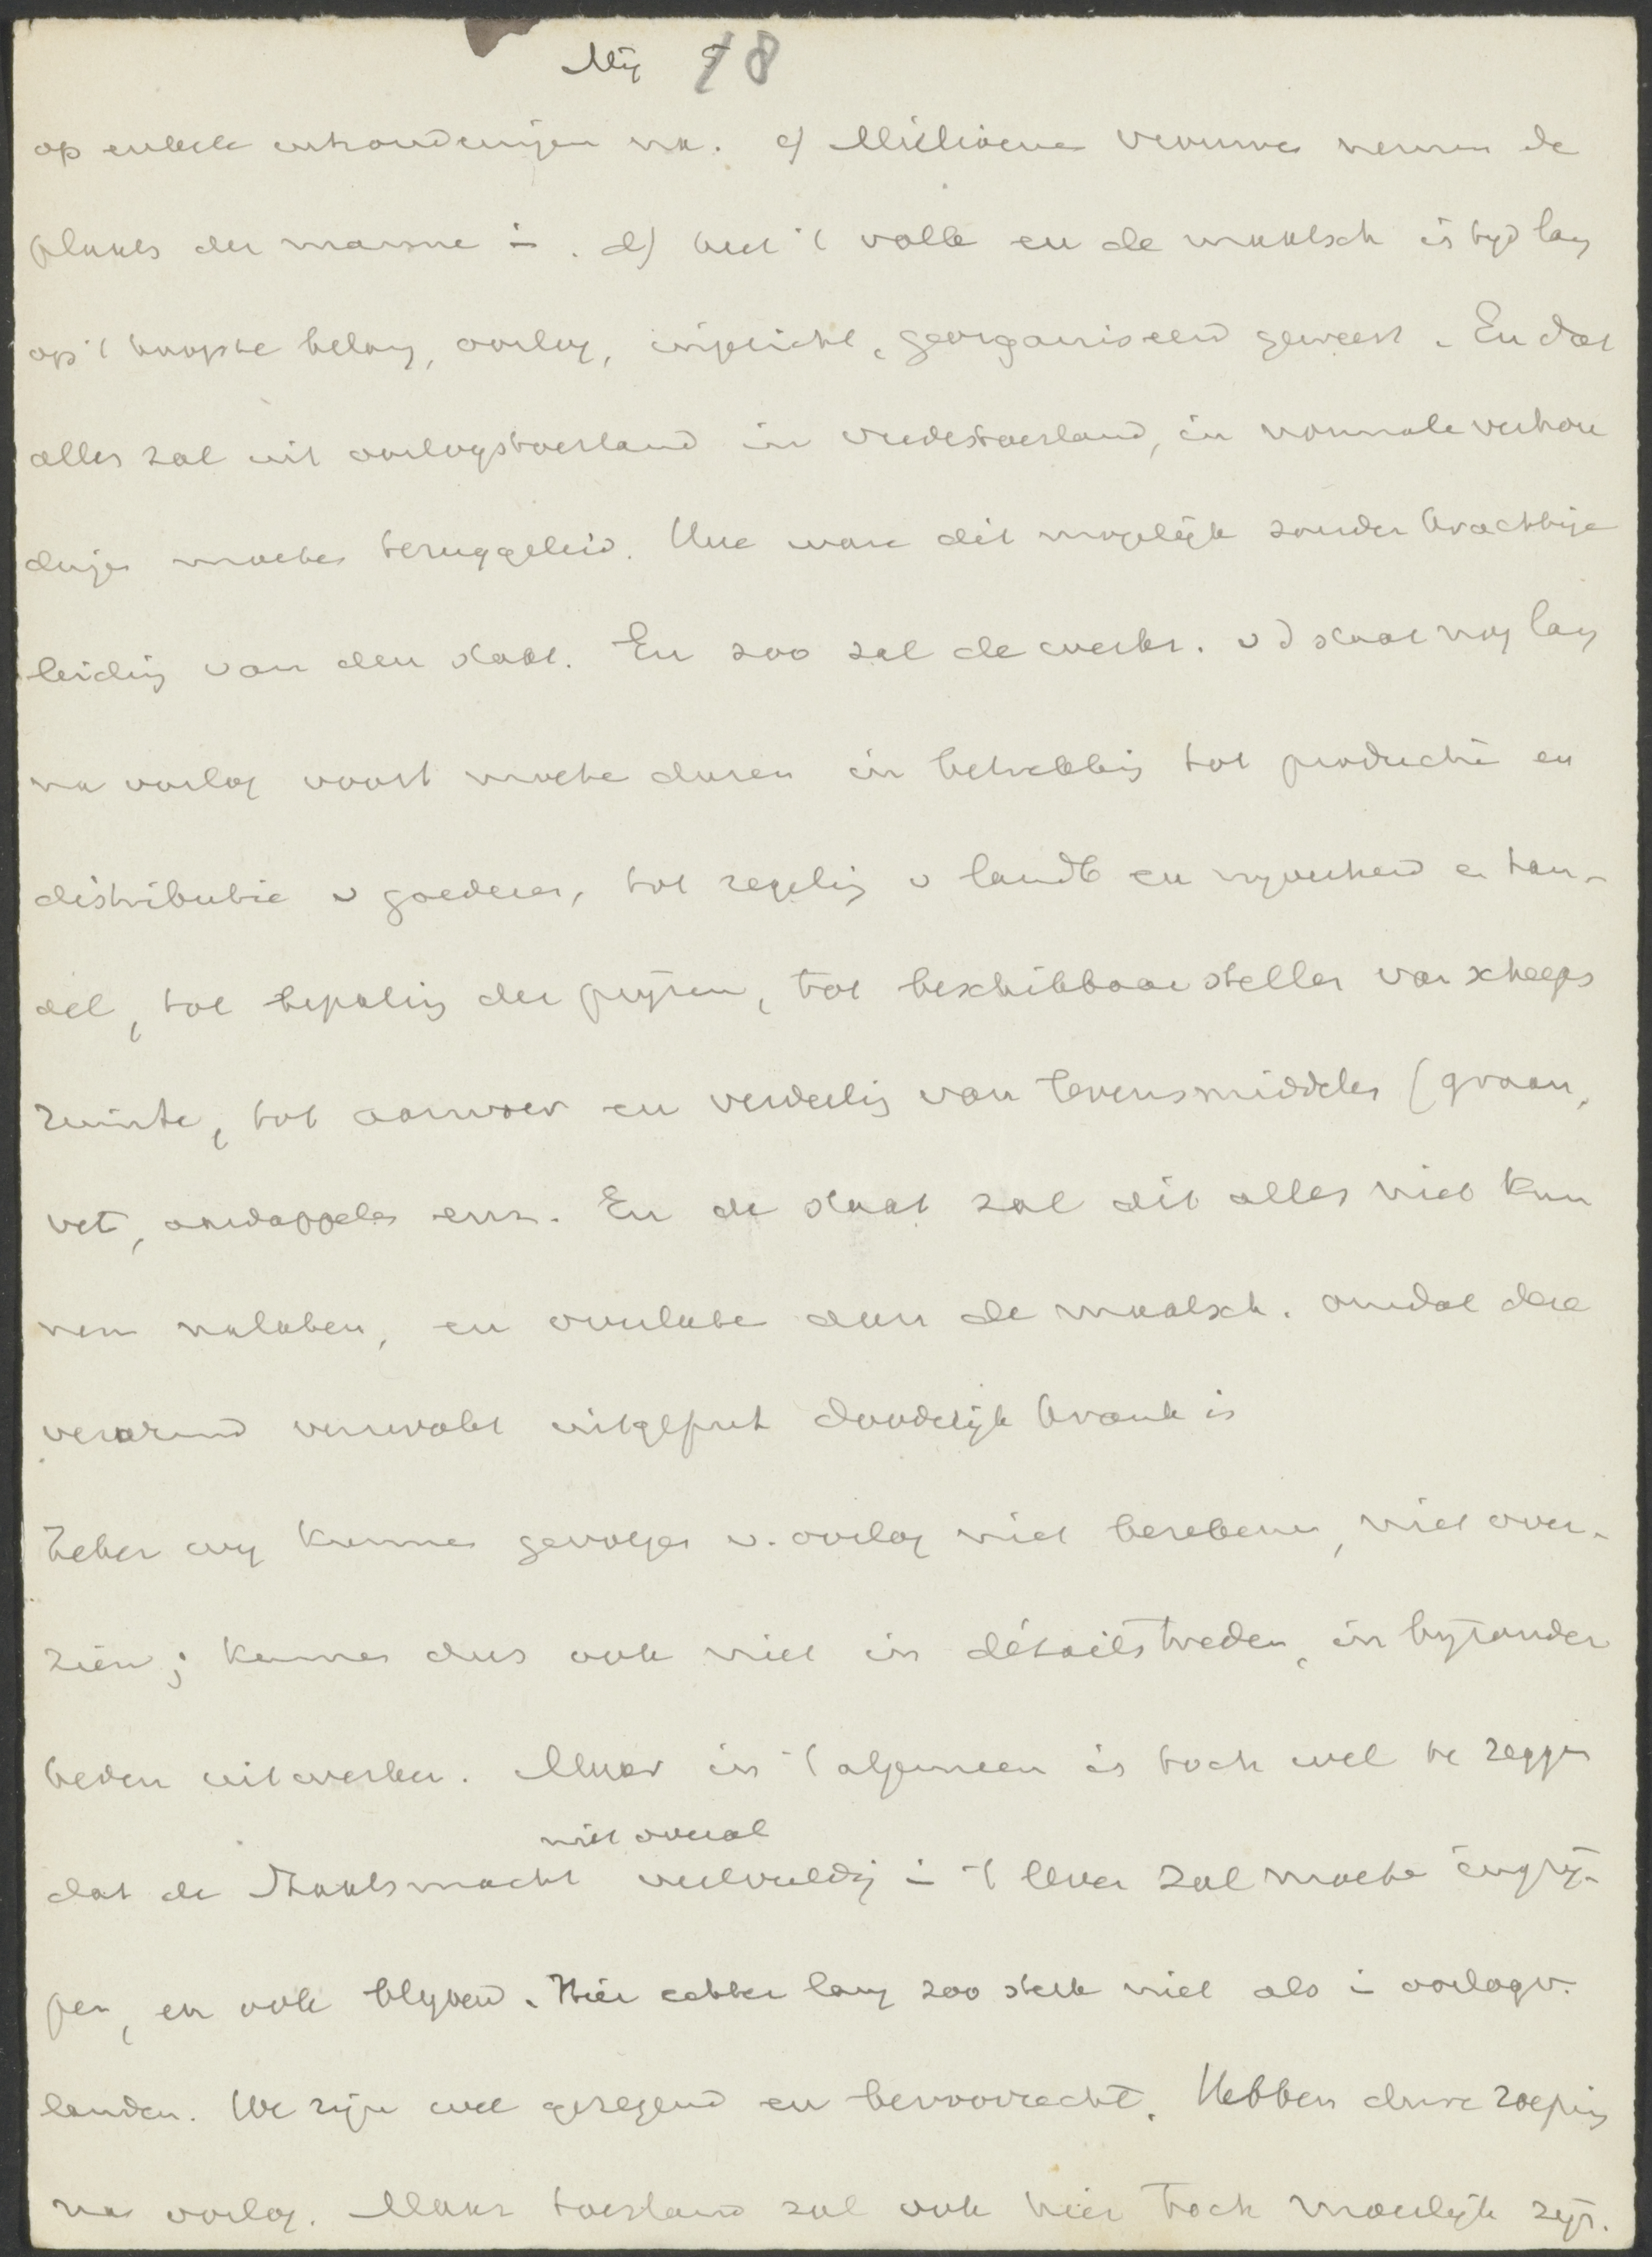 Mij 18
op enkele uitzonderingen na. c) Millioenen vrouwen nemen de
plaats der mannen in. d) heel 't volk en de maatsch is tijd lang
op 't hoogste belang, oorlog, ingericht, georganiseerd geweest. En dat
alles zal uit oorlogstoestand in vredestoestand, in normale verhou
dingen moeten teruggeleid. Hoe ware dit mogelijk zonder krachtige
leiding van den staat. En zoo zal de werkz. v d staat nog lang
na oorlog voort moeten duren in betrekking tot productie en
distributie v goederen, tot regeling v landb en nyverheid en han-
del, tot bepaling der pryzen, tot beschikbaar stellen van scheeps
ruimte, tot aanvoer en verdeeling van levensmiddelen (graan,
vet, aardappelen enz. En de staat zal dit alles niet kun
nen nalaten, en overlaten aan de maatsch. omdat deze
verarmd verzwakt uitgeput doodelijk krank is
Zeker wy kunnen gevolgen v. oorlog niet berekenen, niet over-
zien; kunnen dus ook niet in détails treden, in byzonder
heden uitwerken. Maar in 't algemeen is toch wel te zeggen
niet overal
dat de Staatsmacht veelvuldig in 't leven zal moeten ingrij-
pen, en ook blyvend. Hier echter lang zoo sterk niet als in oorlogv.
landen. We zijn wel gezegend en bevoorrecht. Hebben dure roeping
na oorlog. Maar toestand zal ook hier toch moeilijk zijn.